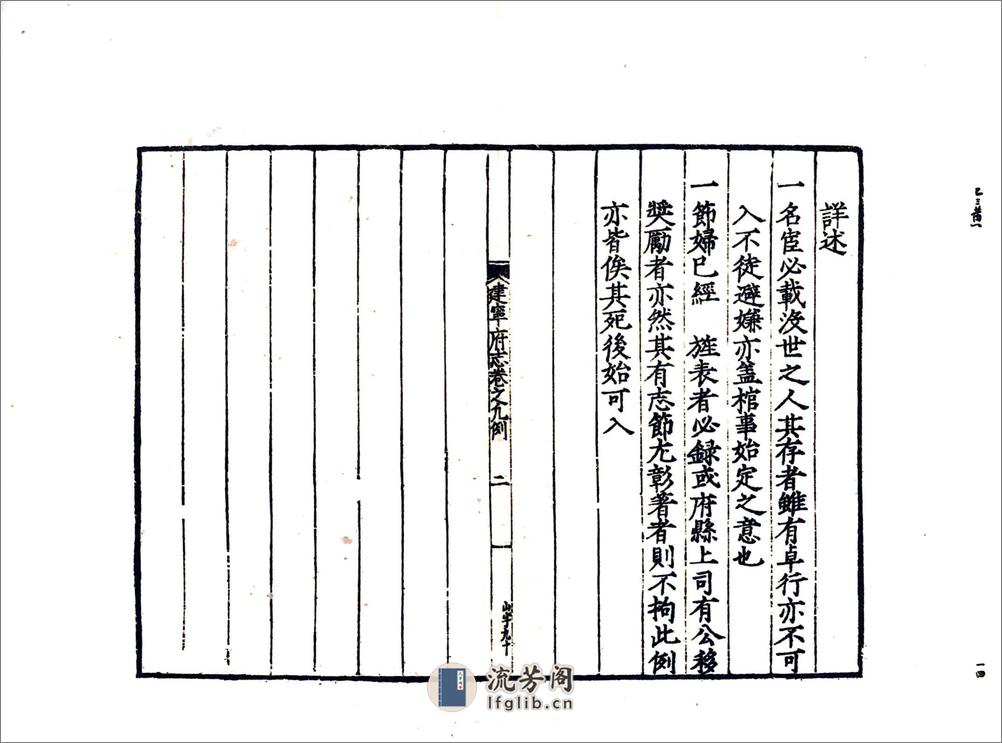 詳述
一名宦必載沒世之人其存者雖有卓行亦不可
入不徒避嫌亦盖棺事始定之意也
一節婦已經　旌表者必録或府縣上司有公移
奬勵者亦然其有志節尤彰著者則不拘此例
亦皆俟其死後始可入
建寧府志卷之凡例　二
一四
流芳阁
lfglib.cn